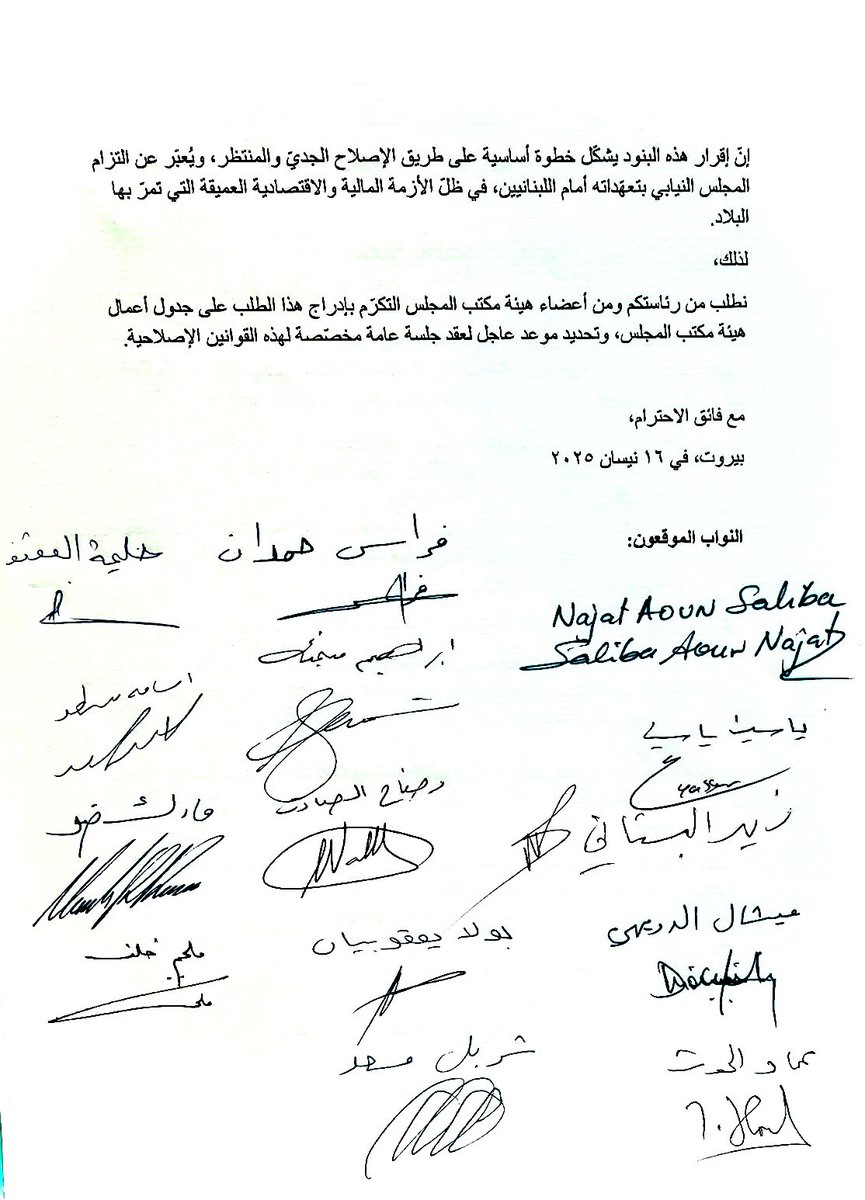 إنّ إقرار هذه البنود يشكّل خطوة أساسية على طريق الإصلاح الجديّ والمنتظر، ويُعبّر عن التزام
المجلس النيابي بتعهّداته أمام اللبنانيين، في ظلّ الأزمة المالية والاقتصادية العميقة التي تمرّ بها
البلاد.
لذلك،
نطلب من رئاستكم ومن أعضاء هيئة مكتب المجلس التكرّم بإدراج هذا الطلب على جدول أعمال
هيئة مكتب المجلس، وتحديد موعد عاجل لعقد جلسة عامة مخصّصة لهذه القوانين الإصلاحية.
مع فائق الاحترام،
بيروت، في ١٦ نيسان ٢٠٢٥
النواب الموقعون:
فراس حمدان
حليمة القعقو
فراس
Najat Aoun Saliba
Saliba Aoun Najat
ابراهيم منيمنة
اسامه سعد
ياسين ياسين
Yassin
وضاح الصادق
مارك ضو
فريد البستاني
ميشال الدويهي
بولا يعقوبيان
ملحم خلف
ملحم
شربل مسعد
عماد الحوت
I. Hout